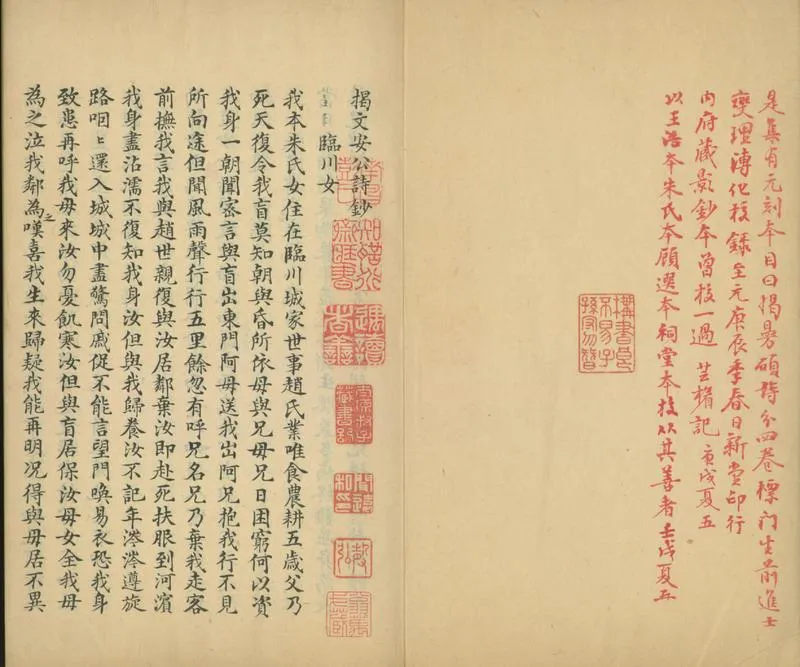 是集有元刻本目曰揭曼碩詩分四卷標門生前進士
燮理溥化校錄至元庚辰季春日新堂印行
內府藏影鈔本曾校一過 芸楣記 庚戌夏五
以王浩本朱氏本顧選本祠堂本校從其善者壬戌夏五
購書良
不易子
孫家勿替
揭文安公詩鈔
臨川女
我本朱氏女住在臨川城家世事趙氏業唯食農耕五歲父乃
死天復令我盲莫知朝與昏所依母與兄母兄日困窮何以資
我身一朝聞密言與盲出東門阿母送我出阿兄抱我行不見
所向途但聞風雨聲行行五里餘忽有呼兄名兄乃棄我走客
前撫我言我與趙世親復與汝居鄰棄汝即赴死扶服到河濱
我身盡沾濡不復知我身汝但與我歸養汝不記年涔涔遵旋
路咽〻還入城城中盡驚問戚促不能言望門喚易衣恐我身
致患再呼我母來汝勿憂飢寒汝但與盲居保汝母女全我母
為之泣我鄰為之嘆喜我生來歸疑我能再明况得與母居不異